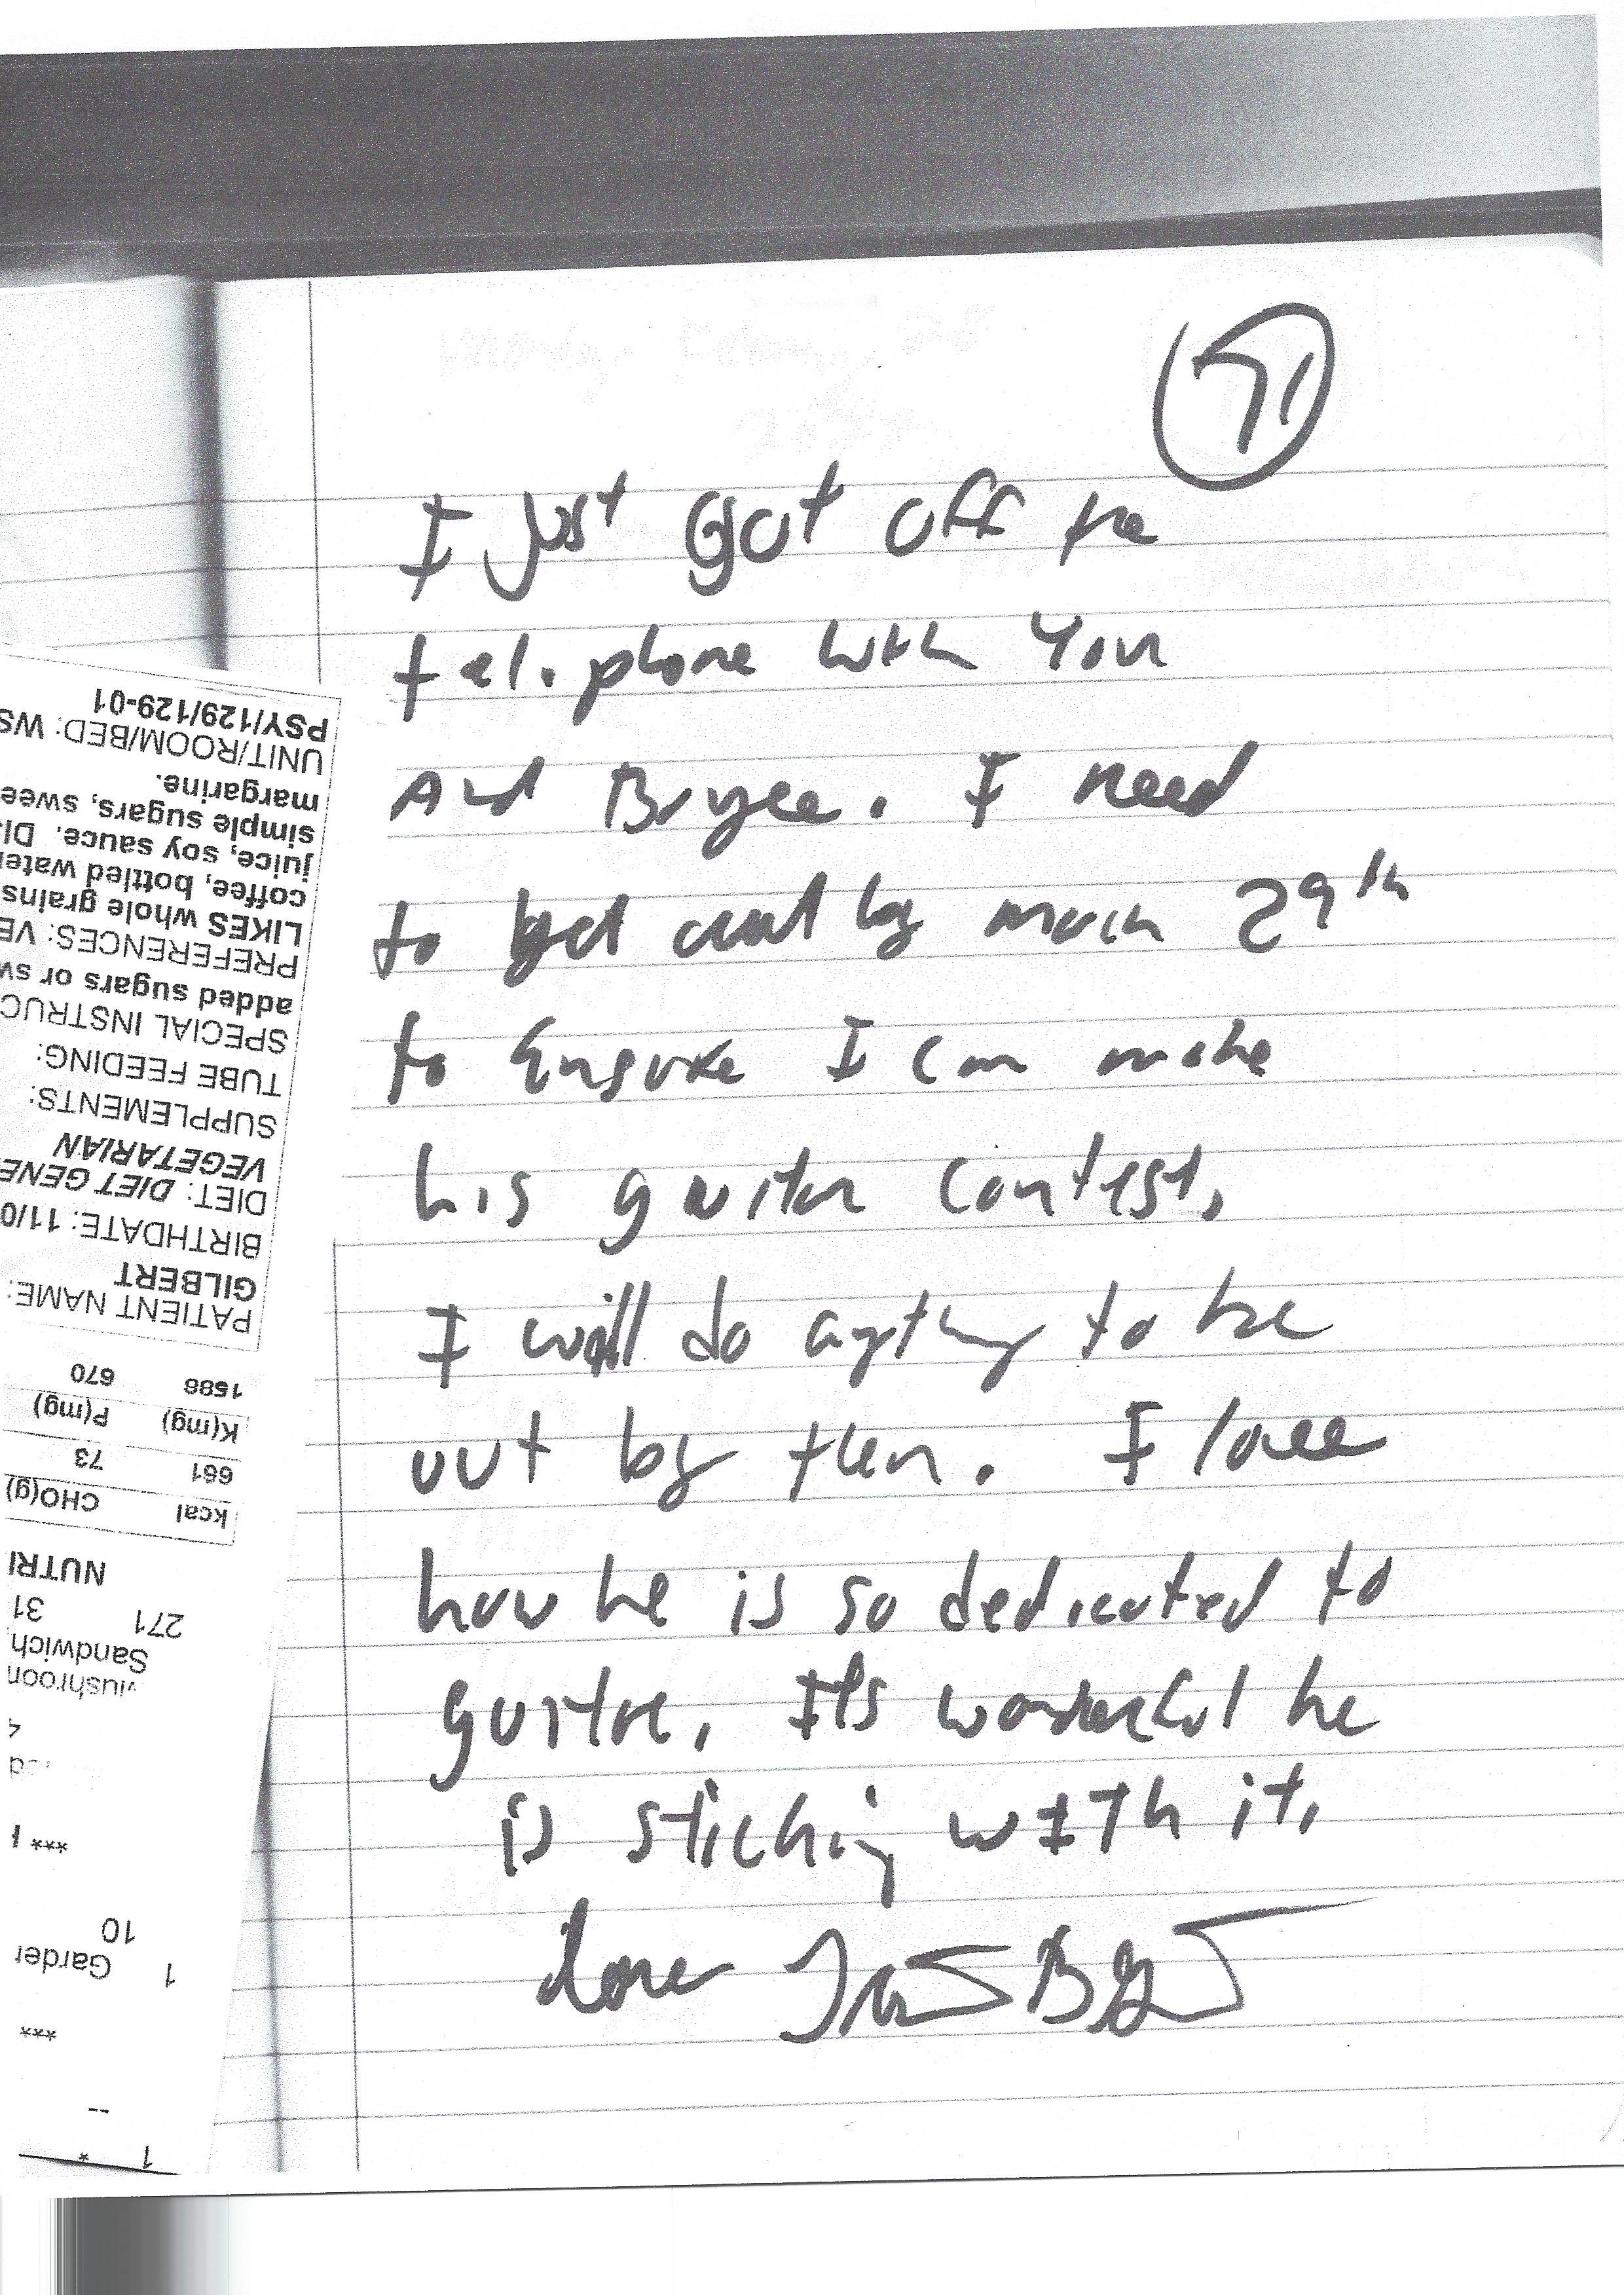 71
I just Got off the
telephone with You
And Bryce. I need
to get out by March 29th
to Ensure I can make
his guitar contest,
I will do anything to be
out by then. I love
how he is so dedicated to
guitar, It's wonderful he
is sticking wITh it,
Love
PSY/129/129-01
UNIT/ROOM/BED: WS
margarine.
simple sugars, swee
juice, soy sauce. Di
coffee, bottled water
LIKES whole grains
PREFERENCES: VE
added sugars or sw
SPECIAL INSTRUC
TUBE FEEDING:
SUPPLEMENTS:
VEGETARIAN
DIET: DIET GENE
BIRTHDATE: 11/0
GILBERT
PATIENT NAME:
1588 670
K(mg) P(mg)
661 73
kcal CHO(g)
NUTRI
271 31
Sandwich,
Mushroom
***
10
1 Garden
***
--
1 *